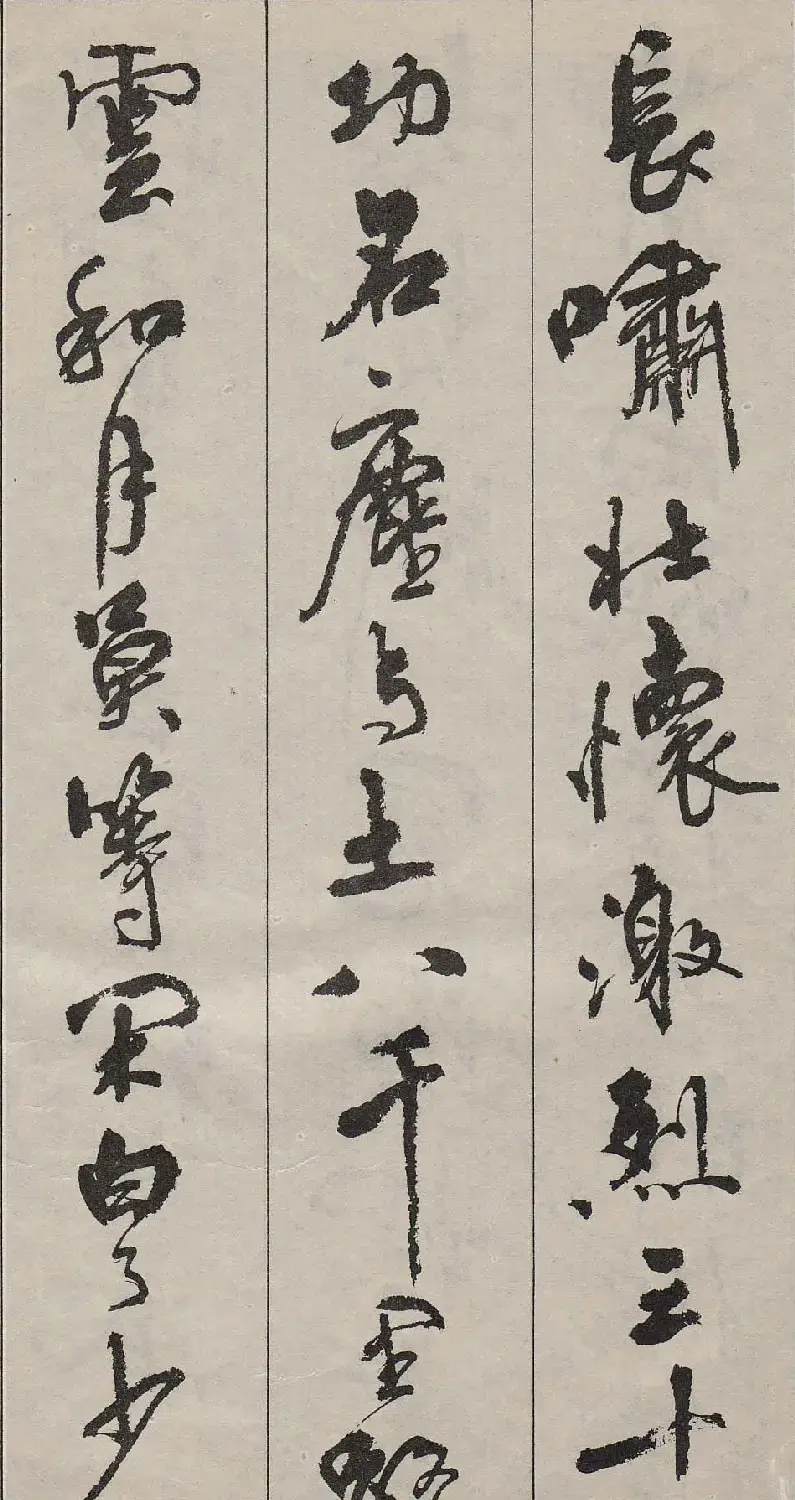 長嘯壯懷激烈三十
功名塵与土八千里路
雲和月莫等閑白了少